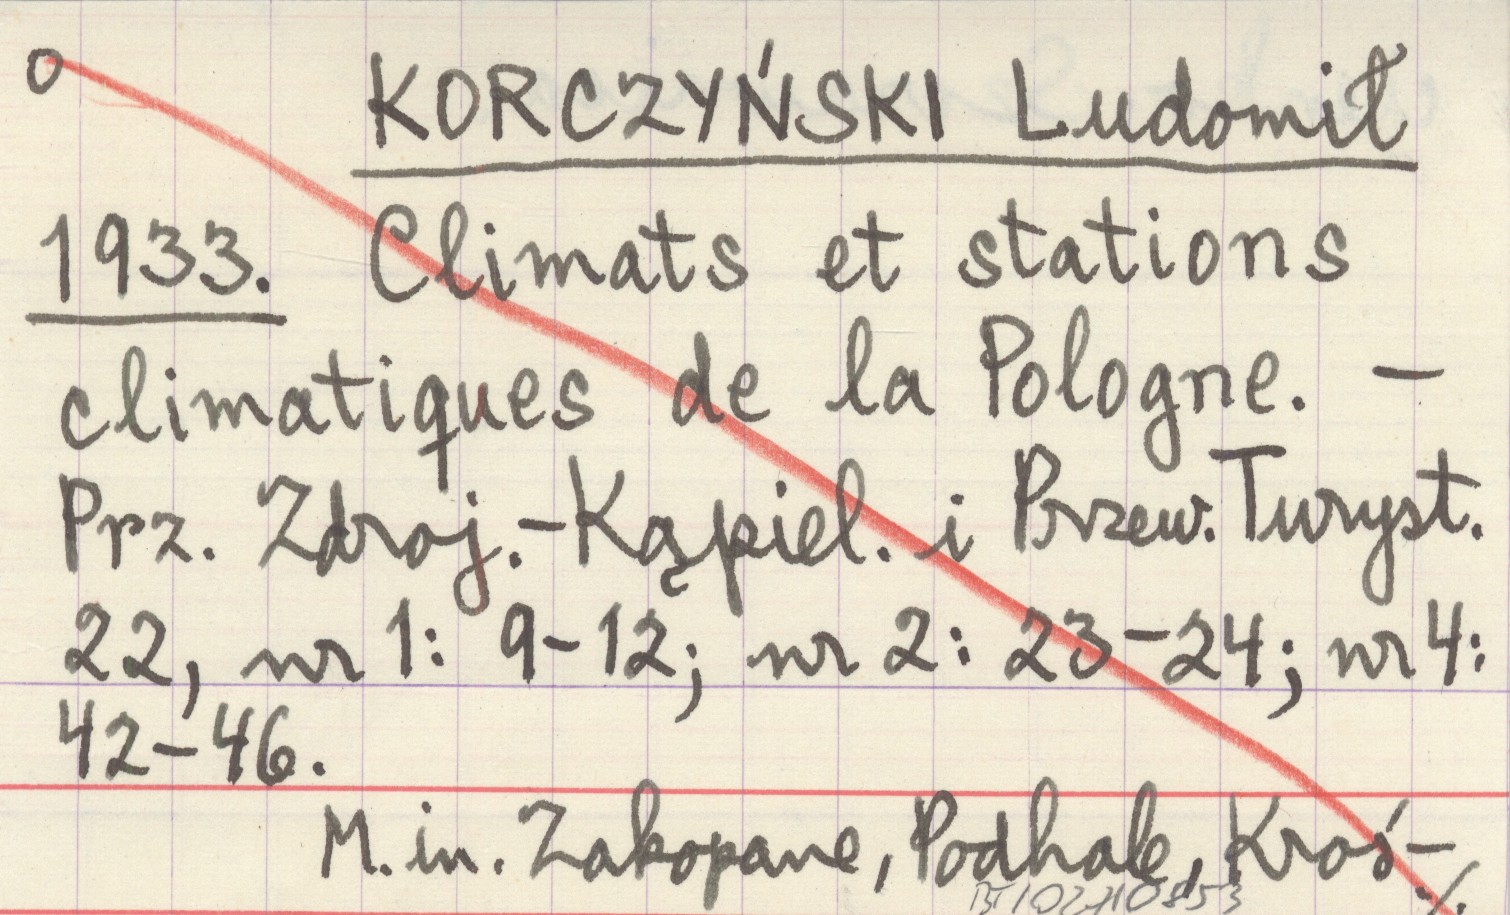 O KORCZYŃSKI Ludomił
1933. Climats et stations
climatiques de la Pologne. –
Prz. Zdroj.-Kąpiel. i Przew. Turyst.
22, nr 1: 9–12; nr 2: 23–24; nr 4:
42–46.
M. in. Zakopane, Podhale, Kroś- ./.